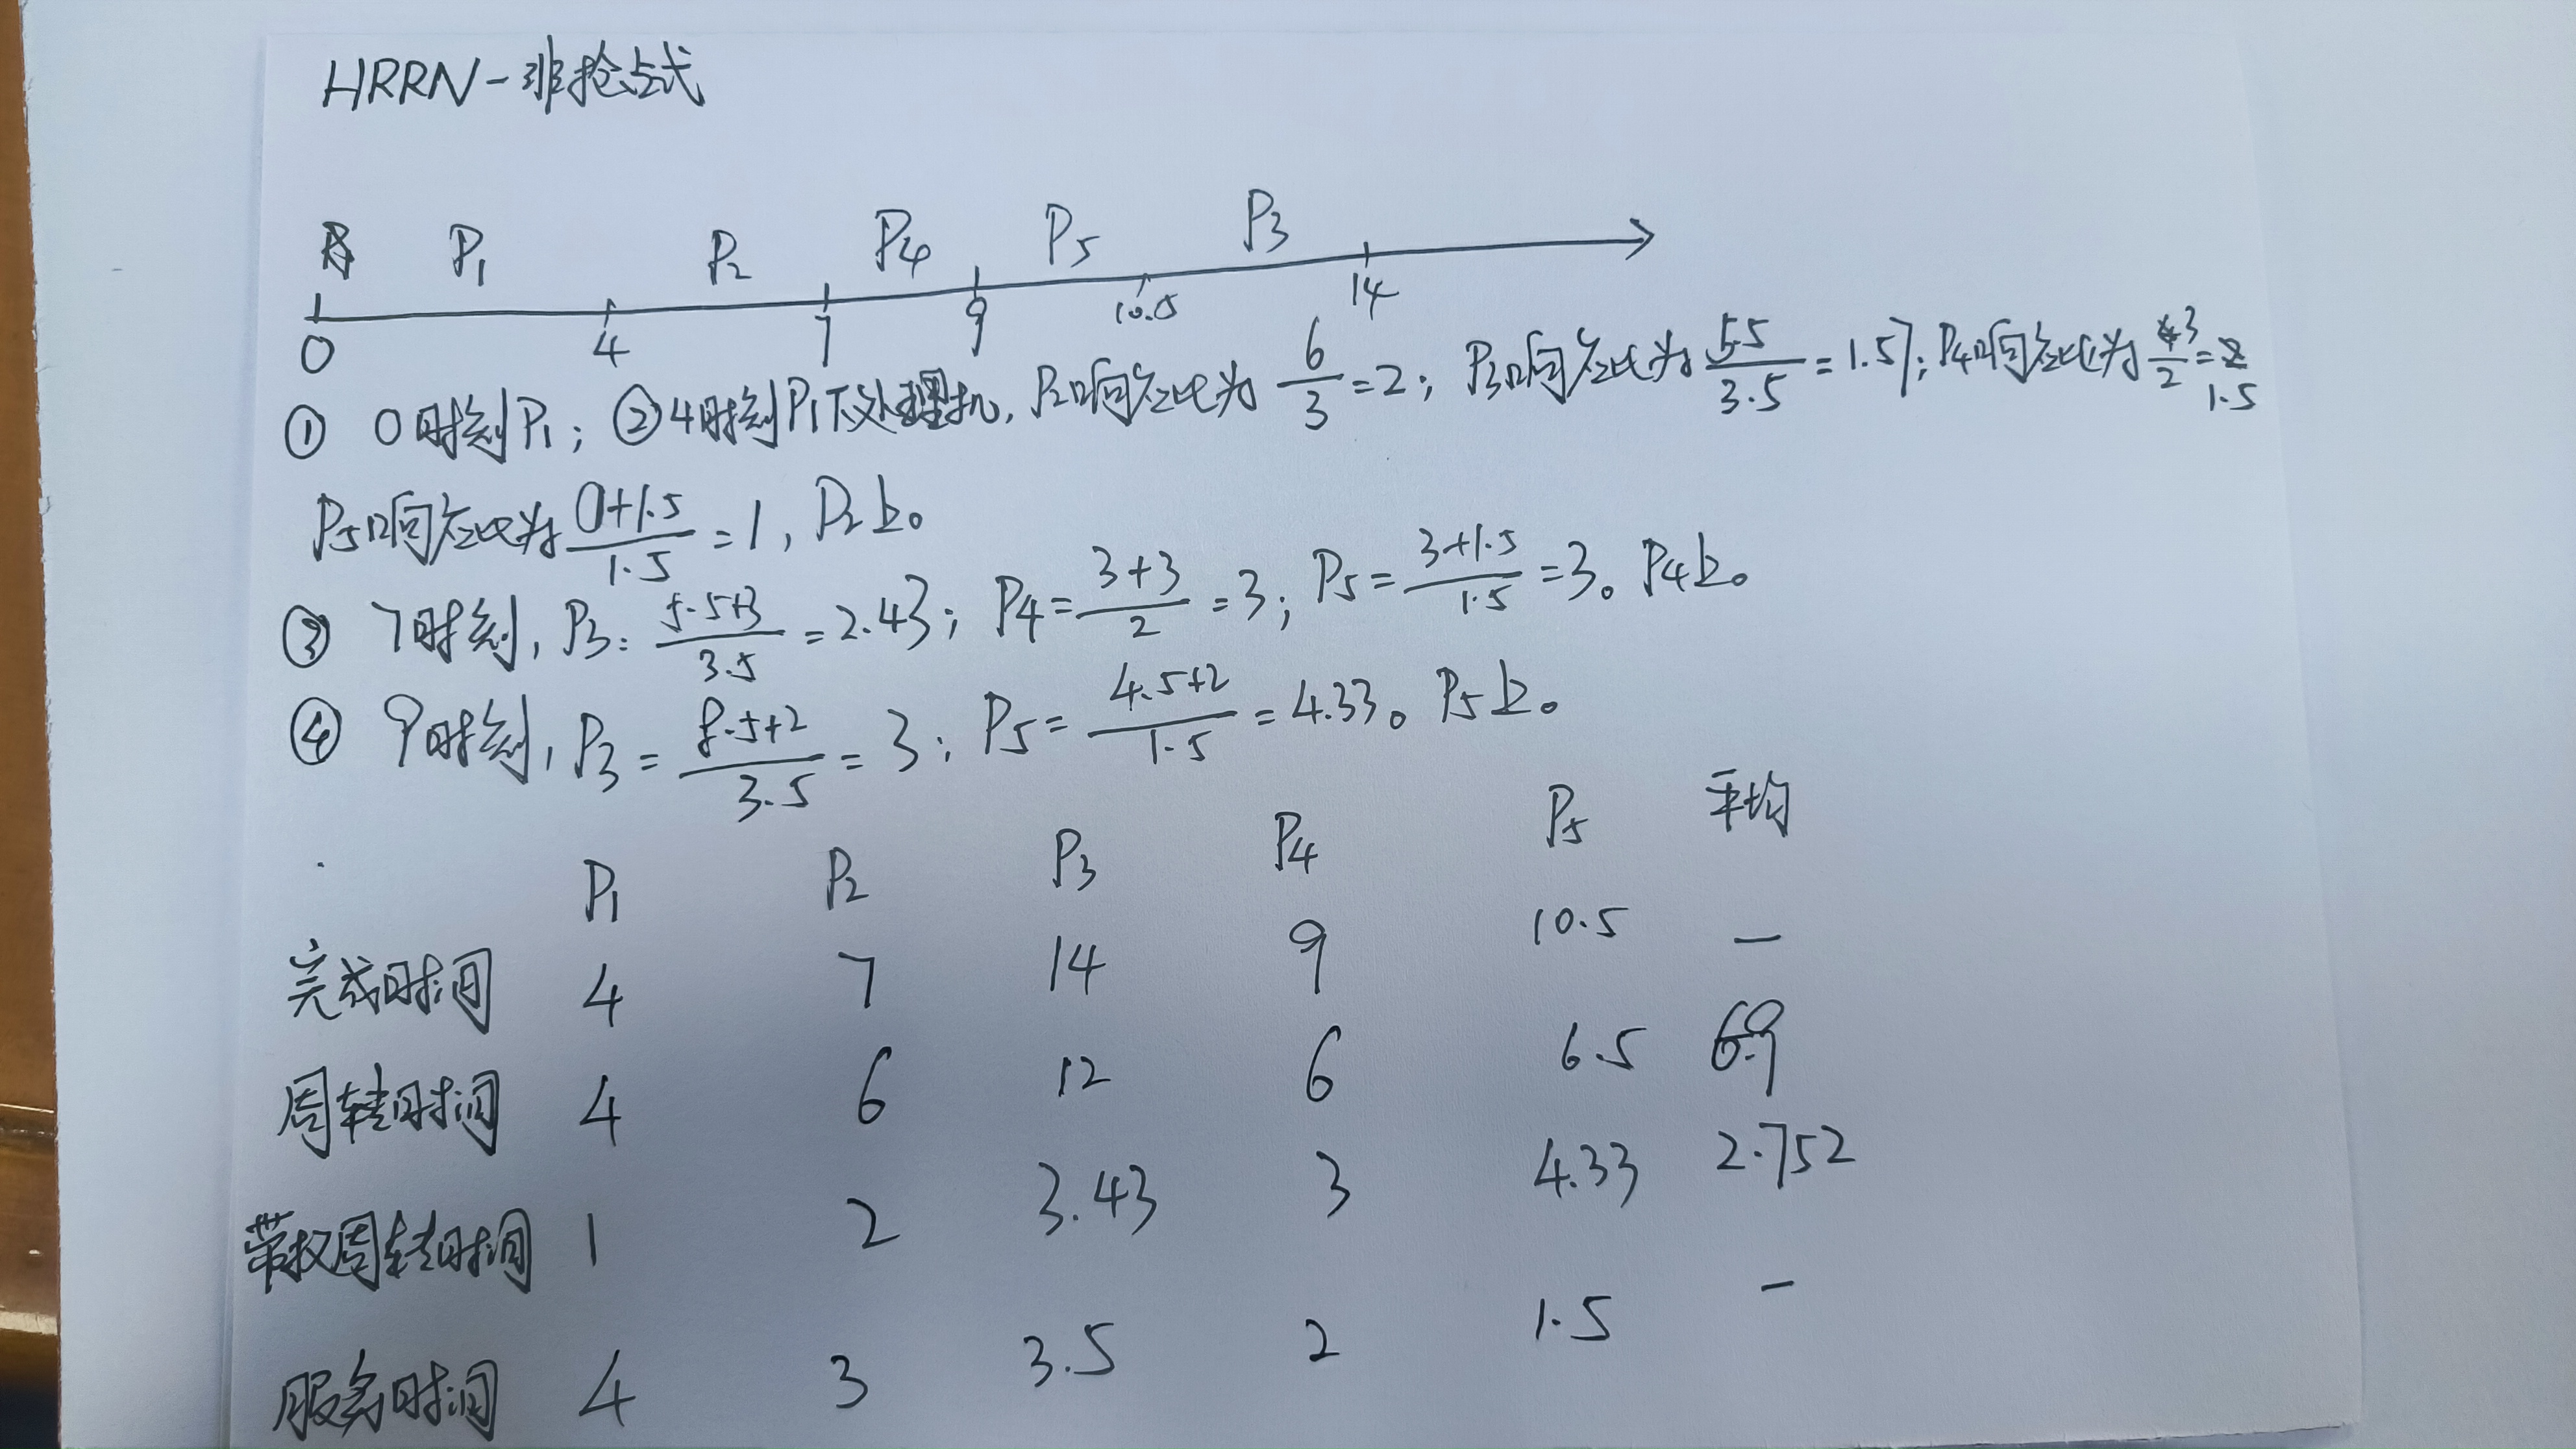 HRRN-非抢占式
P1 P2 P4 P5 P3
0 4 7 9 10.5 14
① 0时刻P1; ②4时刻P1下处理机, P2响应比为 6/3=2; P3响应比为 5.5/3.5=1.57; P4响应比为 3/2=1.5
P5响应比为 0+1.5/1.5=1, P2上。
③ 7时刻, P3: 5.5+3/3.5=2.43; P4=3+3/2=3; P5=3+1.5/1.5=3。P4上。
④ 9时刻, P3=8.5+2/3.5=3; P5=4.5+2/1.5=4.33。P5上。
P1 P2 P3 P4 P5 平均
完成时间 4 7 14 9 10.5 —
周转时间 4 6 12 6 6.5 6.9
带权周转时间 1 2 3.43 3 4.33 2.752
服务时间 4 3 3.5 2 1.5 —